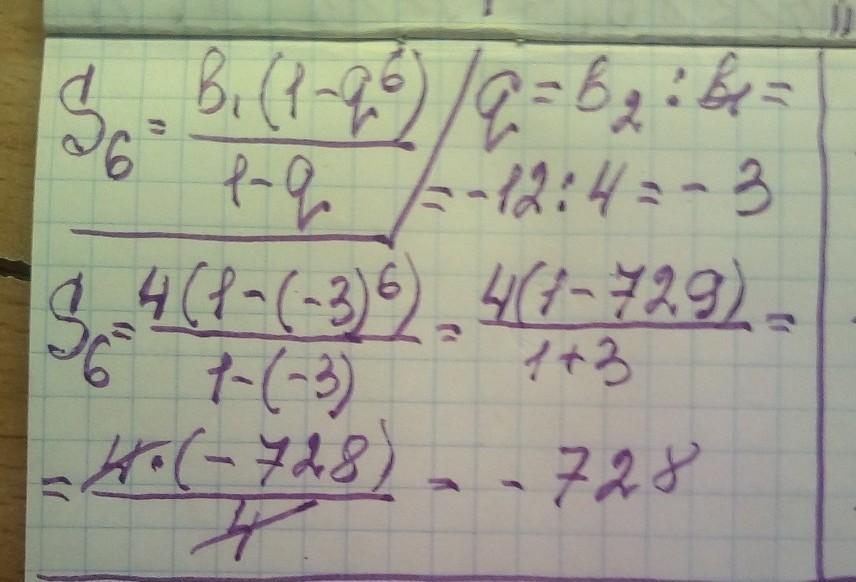 S₆ = b₁(1-q⁶) / 1-q
q = b₂ : b₁ =
= -12 : 4 = -3
S₆ = 4(1-(-3)⁶) / 1-(-3) = 4(1-729) / 1+3 =
= 4·(-728) / 4 = -728